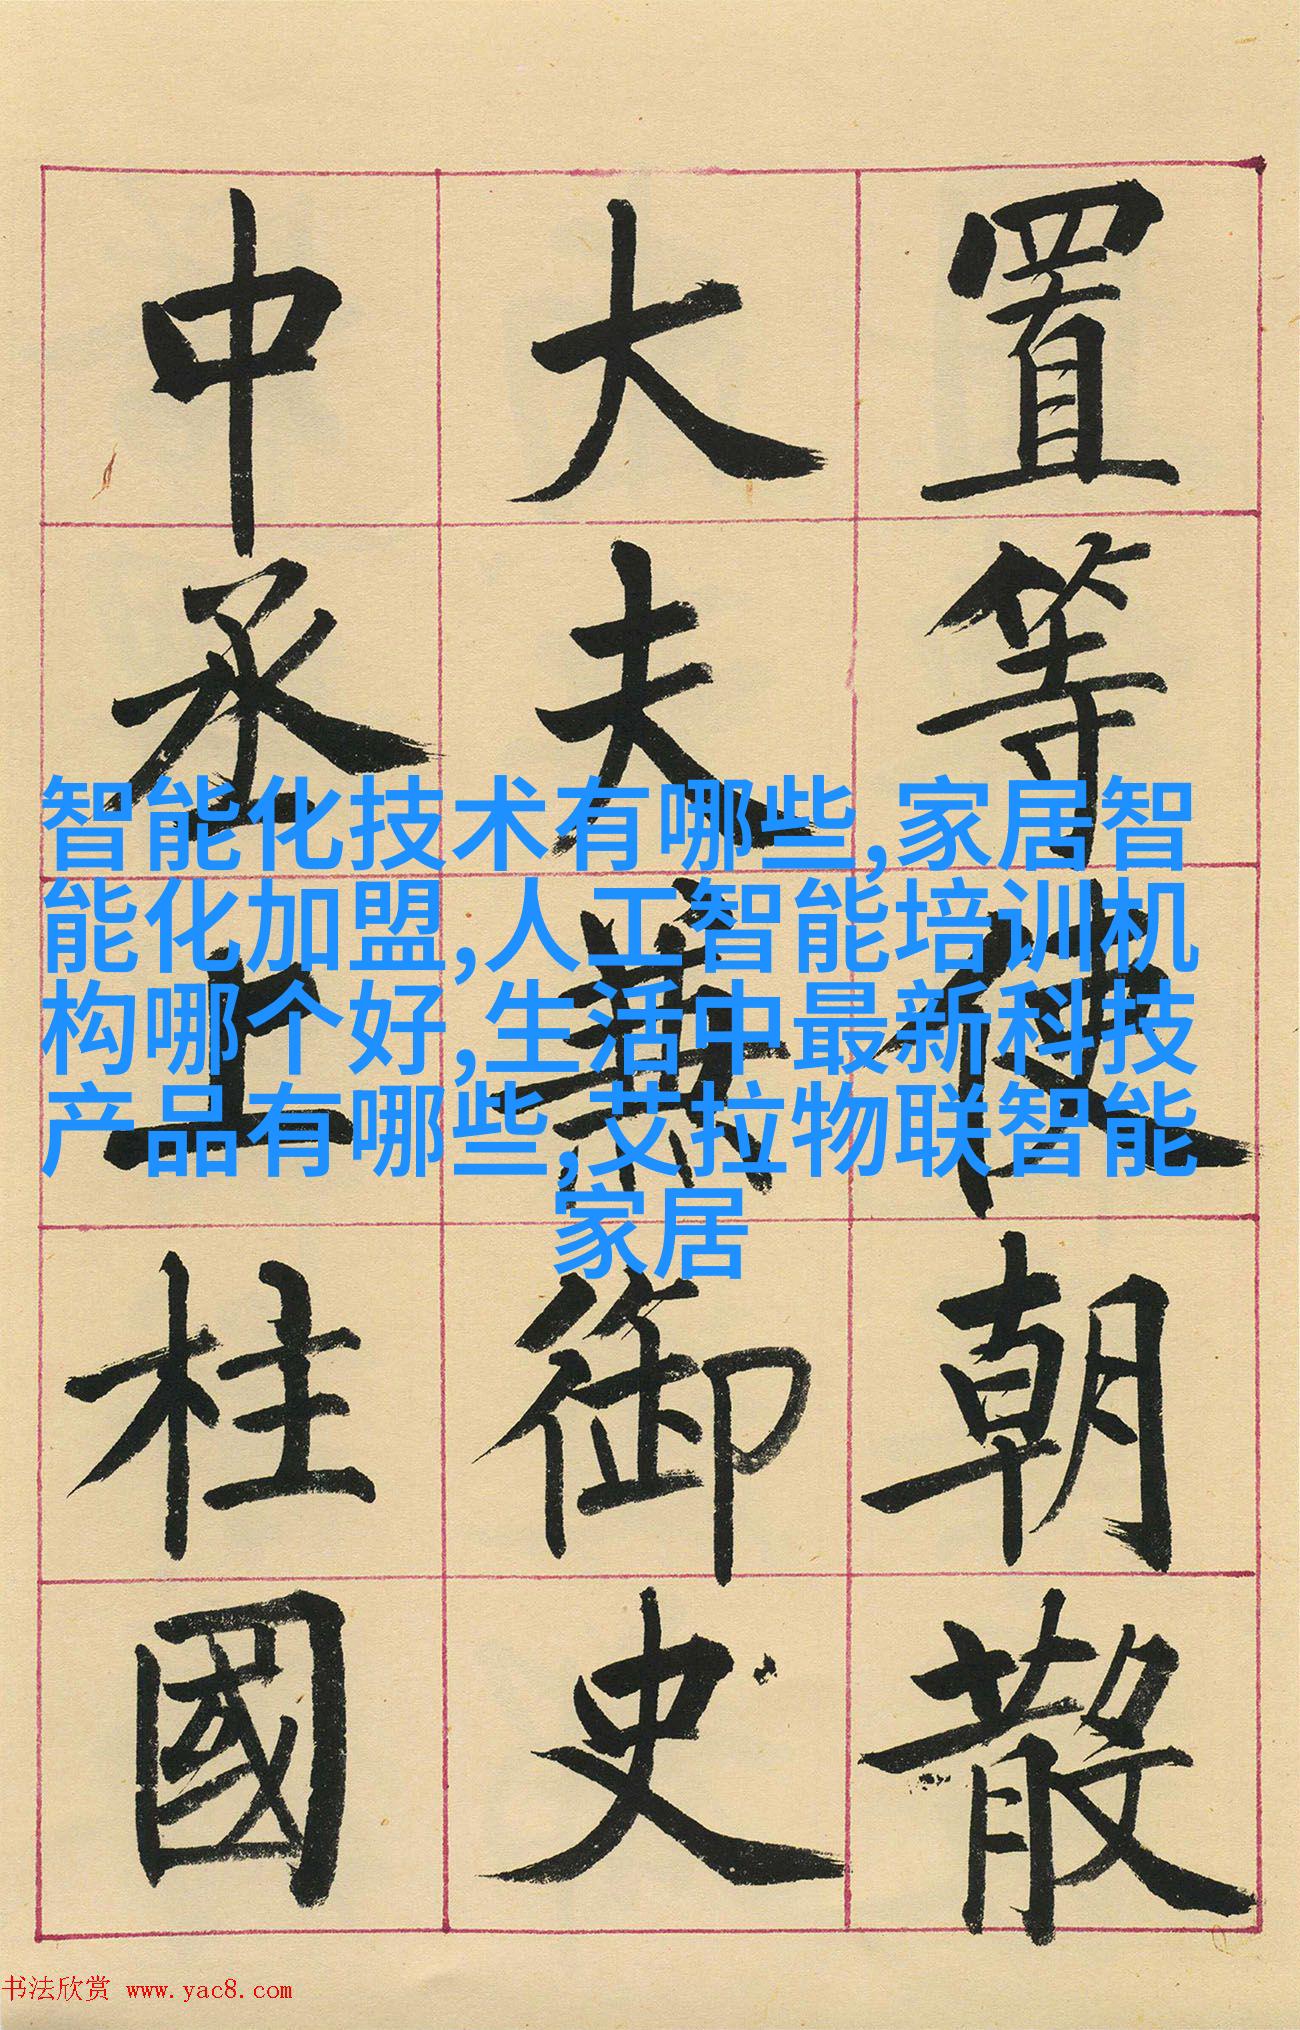 置等使朝散
大夫兼御史
中丞上柱國
智能化技术有哪些,家居智
能化加盟,人工智能培训机
构哪个好,生活中最新科技
产品有哪些,艾拉物联智能
家居
书法欣赏 www.yac8.com